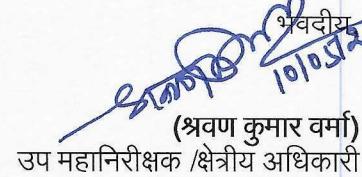 भवदीय
10/05/2
(श्रवण कुमार वर्मा)
उप महानिरीक्षक /क्षेत्रीय अधिकारी